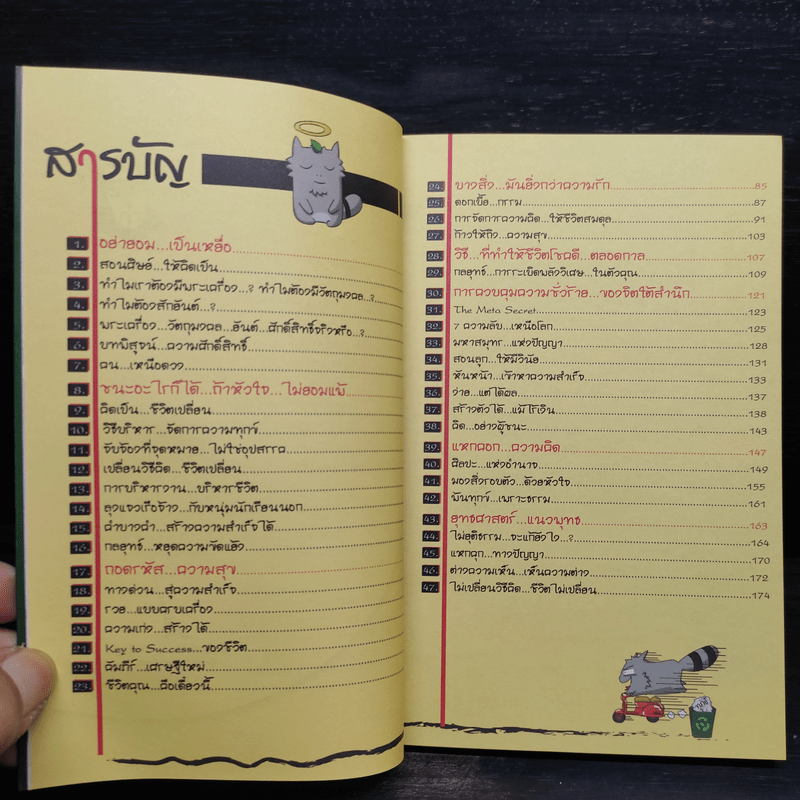 สารบัญ
1. อย่ายอม...เป็นเหยื่อ
2. สอนศิษย์...ให้คิดเป็น
3. ทำไมเราต้องมีพระเครื่อง...? ทำไมต้องมีวัตถุมงคล...?
4. ทำไมต้องสักยันต์...?
5. พระเครื่อง...วัตถุมงคล...ยันต์...ศักดิ์สิทธิ์จริงหรือ...?
6. บทพิสูจน์...ความศักดิ์สิทธิ์
7. คน...เหนือดวง
8. ชนะอะไรก็ได้...ถ้าหัวใจ...ไม่ยอมแพ้
9. คิดเป็น...ชีวิตเปลี่ยน
10. วิธีบริหาร...จัดการความทุกข์
11. จับจ้องที่จุดหมาย...ไม่ใช่อุปสรรค
12. เปลี่ยนวิธีคิด...ชีวิตเปลี่ยน
13. การบริหารงาน...บริหารชีวิต
14. ลุงแจวเรือจ้าง...กับหนุ่มนักเรียนนอก
15. คำบางคำ...สร้างความสำเร็จได้
16. กลยุทธ์...หยุดความขัดแย้ง
17. ถอดรหัส...ความสุข
18. ทางด่วน...สู่ความสำเร็จ
19. รวย...แบบครบเครื่อง
20. ความเก่ง...สร้างได้
21. Key to Success...ของชีวิต
22. คัมภีร์...เศรษฐีใหม่
23. ชีวิตคุณ...คือเดี๋ยวนี้
24. บางสิ่ง...มันยิ่งกว่าความรัก 85
25. ดอกเบี้ย...กรรม 87
26. การจัดการความคิด...ให้ชีวิตสมดุล 91
27. ก้าวให้ถึง...ความสุข 103
28. วิธี...ที่ทำให้ชีวิตโชคดี...ตลอดกาล 107
29. กลยุทธ์...การระเบิดพลังวิเศษ...ในตัวคุณ 109
30. การควบคุมความชั่วร้าย...ของจิตใต้สำนึก 121
31. The Meta Secret 123
32. 7 ความลับ...เหนือโลก 125
33. มหาสมุทร...แห่งปัญญา 128
34. สอนลูก...ให้มีวินัย 131
35. หันหน้า...เข้าหาความสำเร็จ 133
36. ง่าย...แต่ได้ผล 137
37. สร้างตัวได้...แม้ไร้เงิน 138
38. คิด...อย่างผู้ชนะ 143
39. แหกคอก...ความคิด 147
40. ศิลปะ...แห่งอำนาจ 149
41. มองสิ่งรอบตัว...ด้วยหัวใจ 155
42. พ้นทุกข์...เพราะธรรม 161
43. ยุทธศาสตร์...แนวพุทธ 163
44. ไม่ยุติธรรม...จะแก้ยังไง...? 164
45. แหกคุก...ทางปัญญา 170
46. ต่างความเห็น...เห็นความต่าง 172
47. ไม่เปลี่ยนวิธีคิด...ชีวิตไม่เปลี่ยน 174